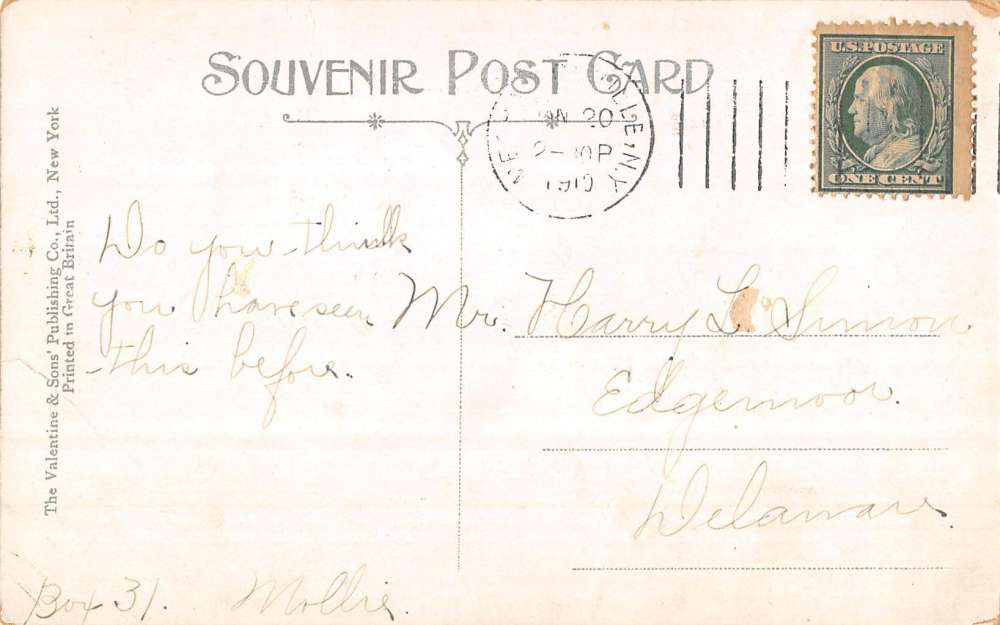 SOUVENIR POST CARD
U.S. POSTAGE
ONE CENT
N 20
10 P
1910
N.Y.
The Valentine & Sons' Publishing Co., Ltd., New York
Printed in Great Britain
Do you think
you have seen
this before.
Mr. Harry L. Simon
Edgemoor.
Delaware.
Box 31. Mollie.